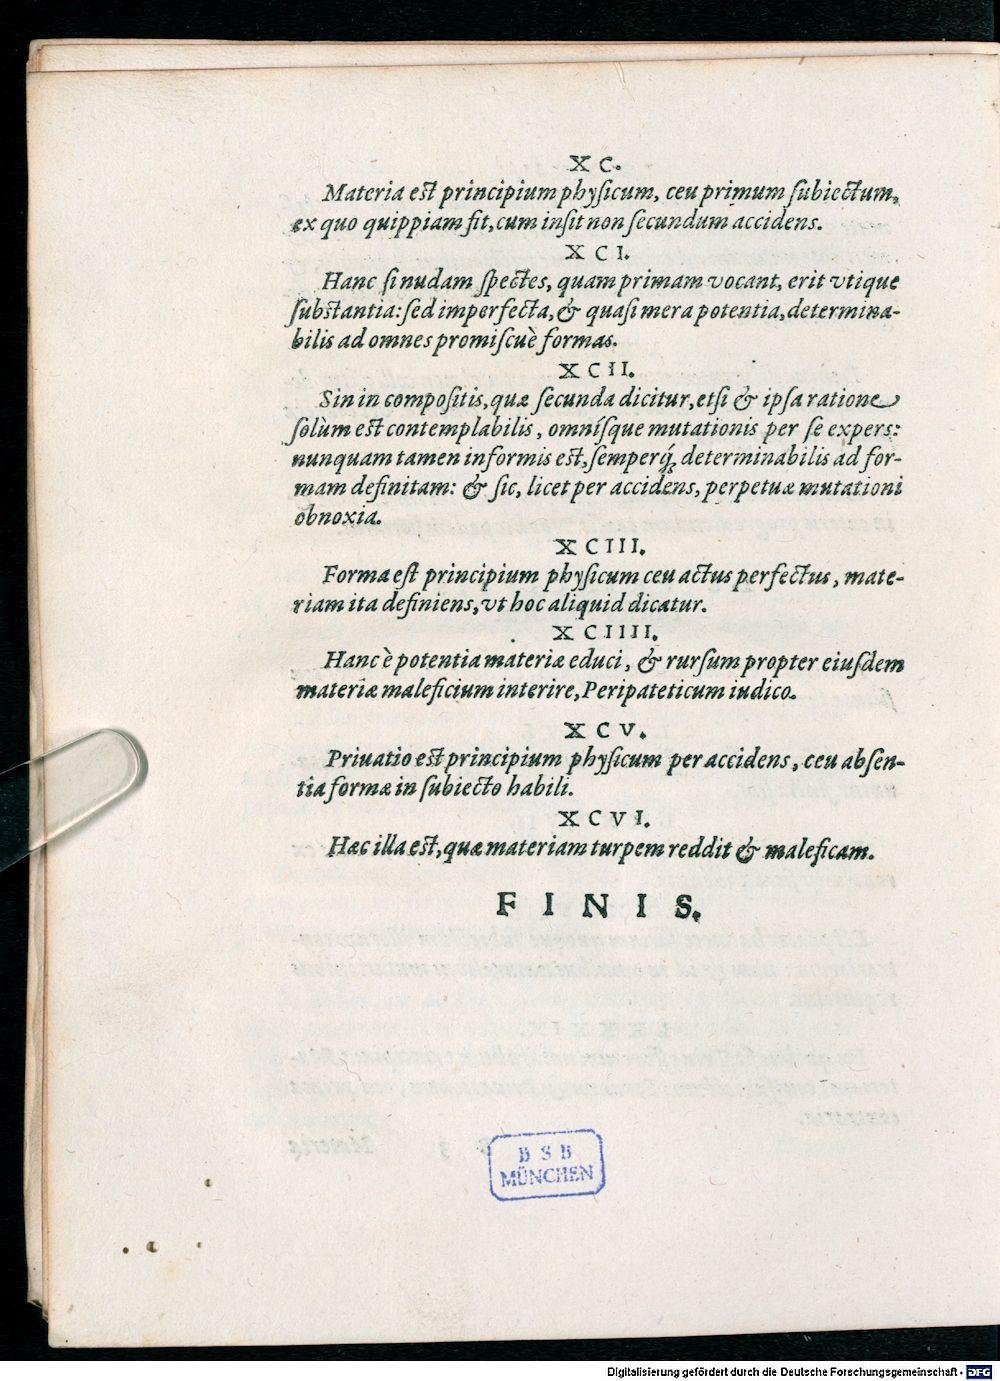 XC.
Materia est principium physicum, ceu primum subiectum,
ex quo quippiam fit, cum insit non secundum accidens.
XCI.
Hanc si nudam spectes, quam primam vocant, erit vtique
substantia: sed imperfecta, & quasi mera potentia, determina-
bilis ad omnes promiscuè formas.
XCII.
Sin in compositis, quæ secunda dicitur, etsi & ipsa ratione
solùm est contemplabilis, omnisque mutationis per se expers:
nunquam tamen informis est, semperq́; determinabilis ad for-
mam definitam: & sic, licet per accidens, perpetuæ mutationi
obnoxia.
XCIII.
Forma est principium physicum ceu actus perfectus, mate-
riam ita definiens, vt hoc aliquid dicatur.
XCIIII.
Hanc è potentia materiæ educi, & rursum propter eiusdem
materiæ maleficium interire, Peripateticum iudico.
XCV.
Priuatio est principium physicum per accidens, ceu absen-
tia formæ in subiecto habili.
XCVI.
Hæc illa est, quæ materiam turpem reddit & maleficam.
FINIS.
BSB
MÜNCHEN
Digitalisierung gefördert durch die Deutsche Forschungsgemeinschaft - DFG